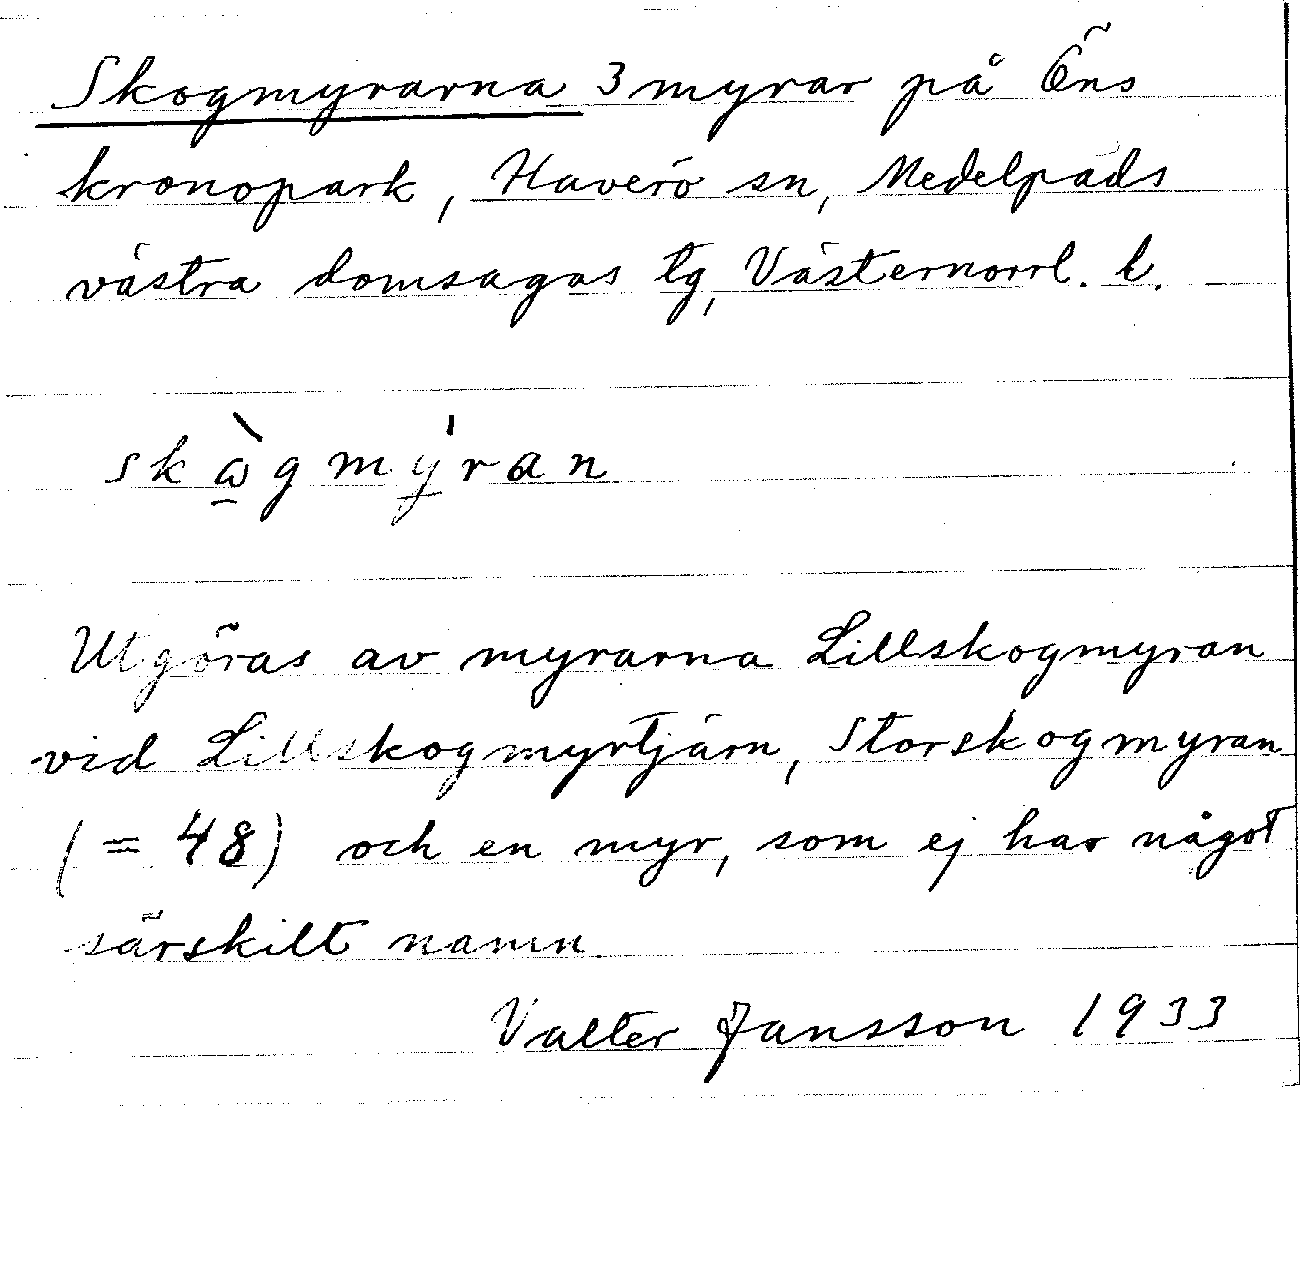 Skogmyrarna 3 myrar på Öns
kronopark, Haverö sn, Medelpads
västra domsagas tg, Västernorrl. l.
skὼ̱gmýran
Utgöras av myrarna Lillskogmyran
vid Lillskogmyrtjärn, Storskogmyran
(= 48) och en myr, som ej har något
särskilt namn.
Valter Jansson 1933